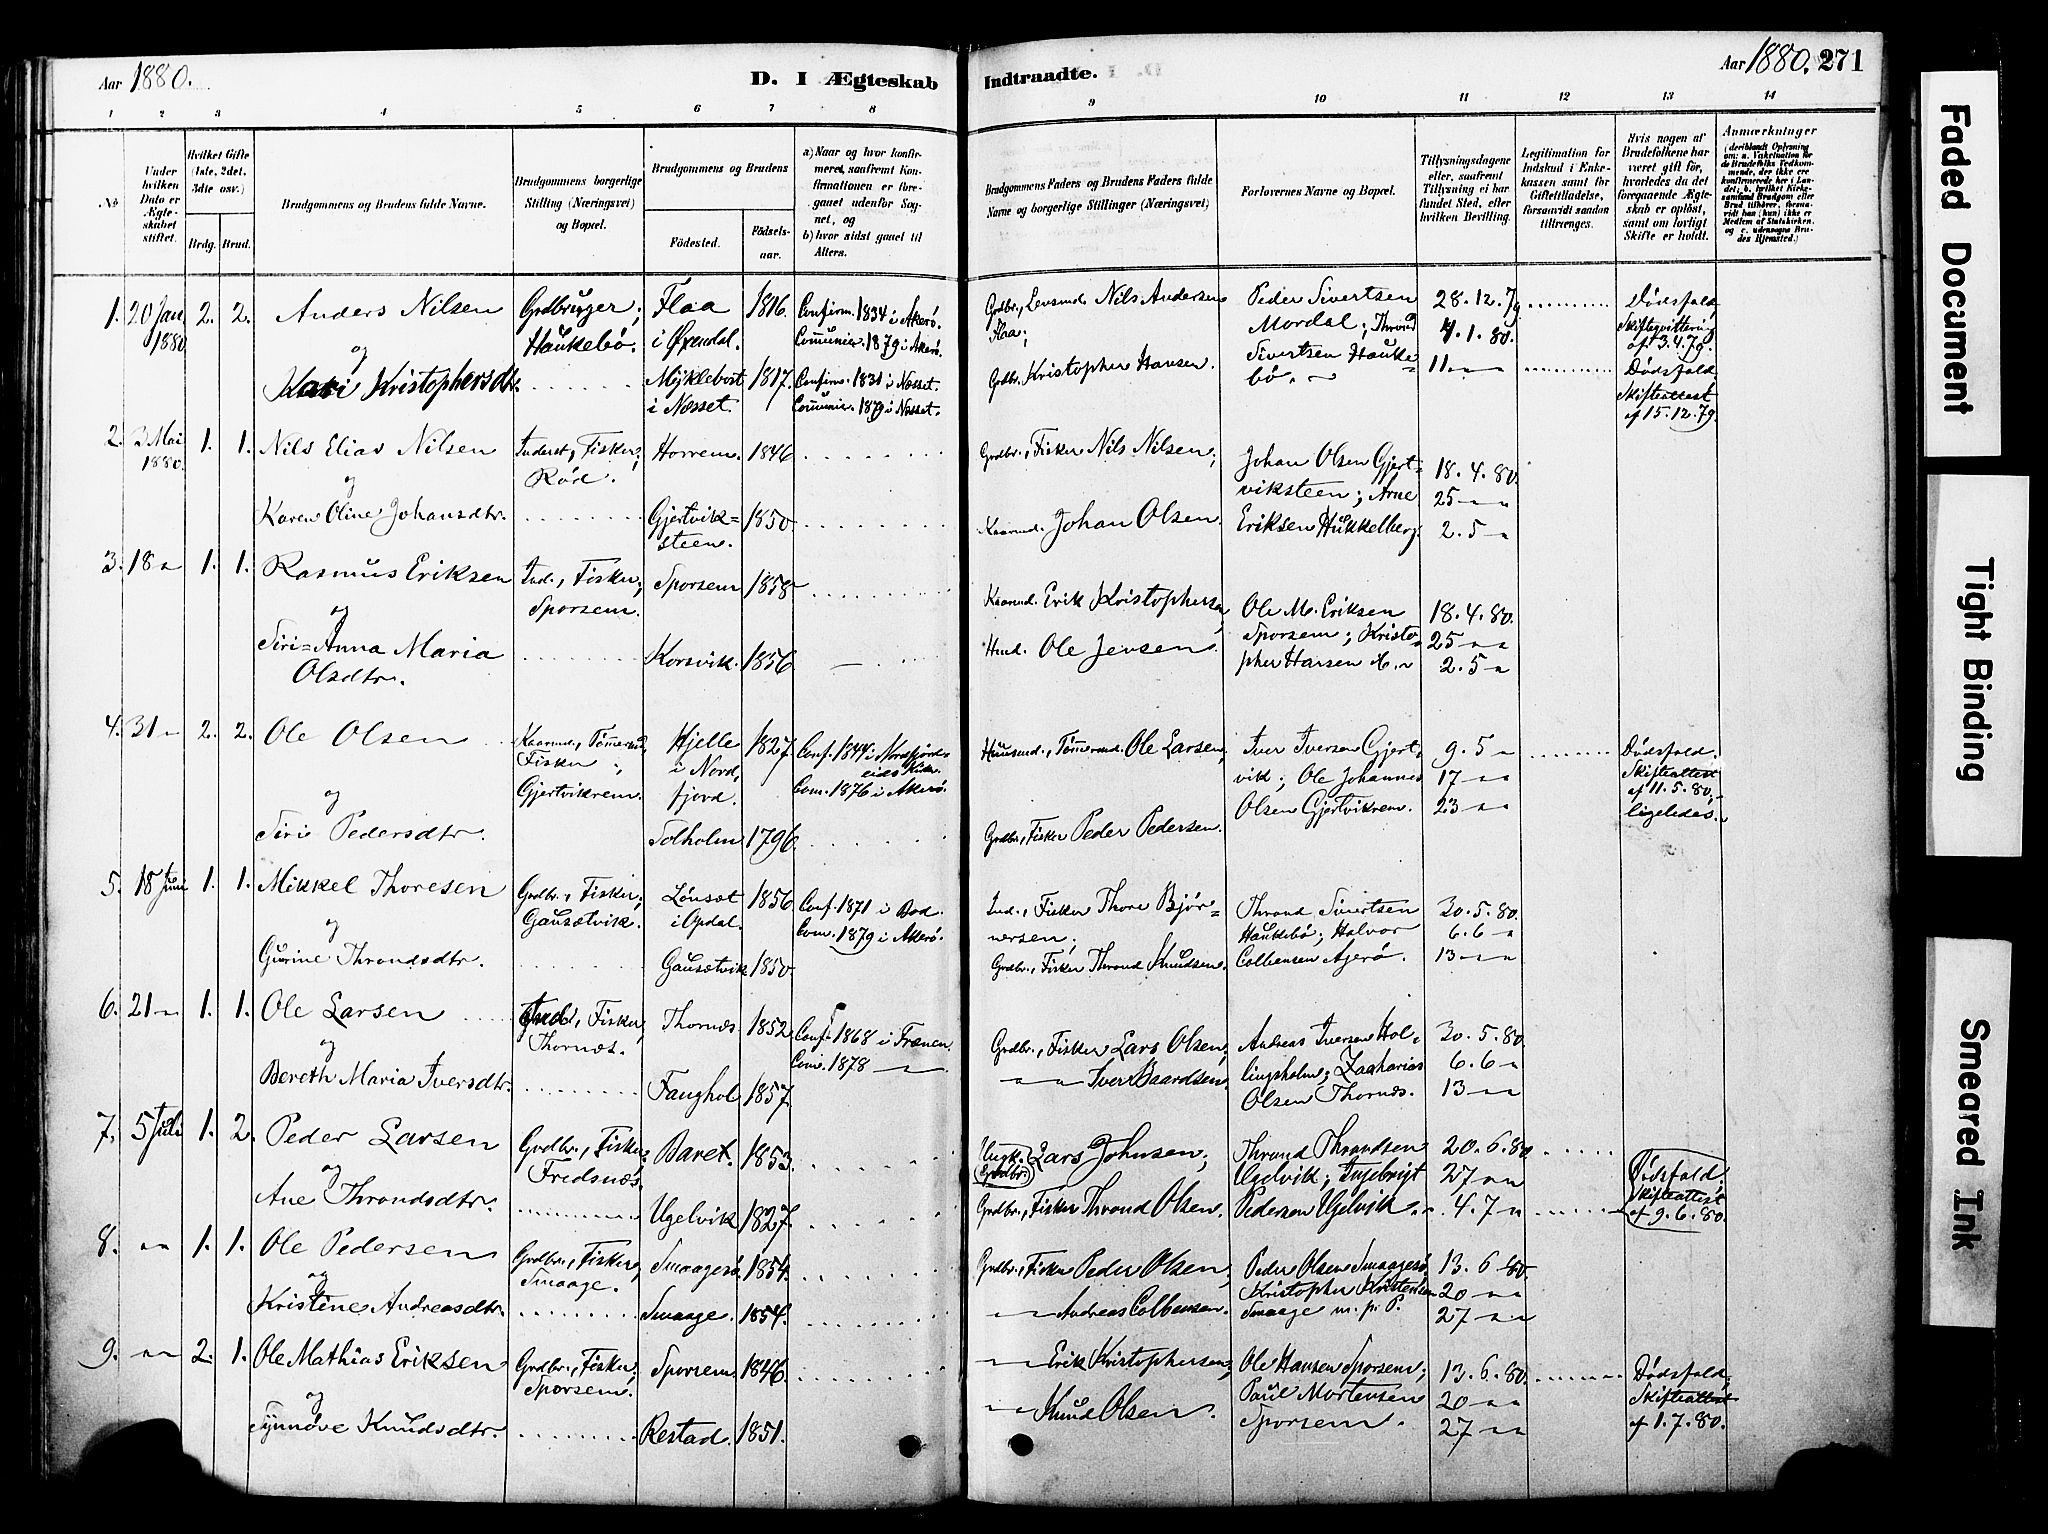 Aar 1880.
D. I Ægteskab
Indtraadte.
Aar 1880. 271
1 2 3 4 5 6 7 8 9 10 11 12 13 14
No
Under hvilken Dato er Ægteskabet stiftet.
Hvilket Gifte (1ste, 2det, 3die osv.)
Brdg. Brud.
Brudgommens og Brudens fulde Navne.
Brudgommens borgerlige Stilling (Næringsvei) og Bopæl.
Brudgommens og Brudens
Fødested.
Fødselsaar.
a) Naar og hvor konfirmeret, saafremt Konfirmationen er foregaaet udenfor Sognet, og
b) hvor sidst gaaet til Alters.
Brudgommens Faders og Brudens Faders fulde Navne og borgerlige Stillinger (Næringsvei)
Forlovernes Navne og Bopæl.
Tillysningsdagene eller, saafremt Tillysning ei har fundet Sted, efter hvilken Bevilling.
Legitimation for Indskud i Enkekassen samt for Giftetilladelse, forsaavidt saadan tiltrænges.
Hvis nogen af Brudefolkene har været gift før, hvorledes da det foregaaende Ægteskab er opløst, samt om lovligt Skifte er holdt.
Anmærkninger
(deriblandt Oplysning om: a. Vakcination for de Brudefolks Vedkommende, der ikke ere konfirmerede her i Landet; b. hvilket Kirkesamfund Brudgom eller Brud tilhører, forsaavidt han (hun) ikke er Medlem af Statskirken, og c. udensogns Brudes Hjemsted.)
1. 20 Jan 1880 2. 2. Anders Nilsen Grdbruger; Haukebø. Flaa i Øxendal. 1816. Confirm. 1834 i Akerø. Communic. 1879 i Akerø. Grdbr., Lensmd. Nils Andersen Flaa; Peder Sivertsen Mordal; Thrond Sivertsen Haukebø. 28.12.79 4.1.80. 11 " " Dødsfald, Skifteqvittering af 3.4.79.
og
Kari Kristophersdtr. Myklebost i Næsset. 1817. Confirm. 1831 i Næsset. Communic. 1879 i Næsset. Grdbr. Kristopher Hansen. Dødsfald Skifteattest af 15.12.79.
2. 3 Mai 1880. 1. 1. Nils Elias Nilsen Inderst, Fisker; Rød. Horrem. 1846 Grdbr., Fisker Nils Nilsen; Johan Olsen Gjertviksteen; Arne Eriksen Hukkelberg. 18.4.80. 25 " " 2.5 "
og
Karen Oline Johansdtr. Gjertviksteen. 1850. Kaarmd. Johan Olsen.
3. 18 " 1. 1. Rasmus Eriksen Ind., Fisker; Sporsem. Sporsem 1858 Kaarmd. Erik Kristophersen, Ole M. Eriksen Sporsem; Kristopher Hansen 18.4.80. 25 " " 2.5 "
og
Siri=Anna Maria Olsdtr. Korsvik. 1856 Hmd. Ole Jensen.
4. 31 " 2. 2. Ole Olsen Kaarmd., Tømmermd, Fisker; Gjertvikrem. Hjelle i Nordfjord. 1827. Conf. 1844 i Nordfjordeids Kirke. Com. 1876 i Akerø. Huusmd., Tømmermd. Ole Larsen; Iver Iversen Gjertvik; Ole Johannes Olsen Gjertvikrem. 9.5 " 17 " " 23 " " Dødsfald, Skifteattest af 11.5.80,
og
Siri Pedersdtr. Solholm 1796. Grdbr., Fisker Peder Pedersen. ligeledes.
5. 18 Juni 1. 1. Mikkel Thoresen Grdbr., Fisker; Gausætvik. Lønset i Opdal. 1856 Conf. 1871 i Bod. Com. 1879 i Akerø. Ind., Fisker Thore Bjørnersen; Thrond Sivertsen Haukebø; Halvor Colbensen Agerø. 30.5.80. 6.6 " 13 " "
og
Gurine Throndsdtr. Gausætvik 1850. Grdbr., Fisker Thrond Knudsen.
6. 21 " 1. 1. Ole Larsen Ind., Fisker, Thornæs. Thornæs 1852 Conf. 1868 i Frænen. Com. 1878 " Grdbr., Fisker Lars Olsen; Andreas Iversen Hollingsholm; Zacharias Olsen Thornæs. 30.5.80. 6.6 " 13 " "
og
Bereth Maria Iversdtr. Fanghol 1857 " " Iver Baardsen.
7. 5 Juli 1. 2. Peder Larsen Grdbr., Fisker; Fredsnæs. Baret. 1853. Ungk. Grdbr. Lars Johnsen; Thrond Throndsen Ugelvik; Ingebrigt Pedersen Ugelvik. 20.6.80 27 " " 4.7 " Dødsfald. Skifteattest af 9.6.80.
og
Ane Throndsdtr. Ugelvik 1827. Grdbr., Fisker Thrond Olsen.
8. " " 1. 1. Ole Pedersen Grdbr., Fisker, Smaage. Smaagesø. 1854. Grdbr., Fisker Peder Olsen; Peder Olsen Smaagesø, Kristopher Kristensen Smaage m. p. P. 13.6.80. 20 " " 27 " "
og
Kristine Andreasdtr. Smaage. 1854. " Andreas Colbensen.
9. " " 2. 1. Ole Mathias Eriksen Grdbr., Fisker; Sporsem. Sporsem 1846. " Erik Kristophersen; Ole Hansen Sporsem; Paul Mortensen Sporsem. 13.6.80. 20 " " 27 " " Dødsfald; Skifteattest af 1.7.80.
og
Synnøve Knudsdtr. Restad. 1851. " Knud Olsen.
Faded Document
Tight Binding
Smeared Ink